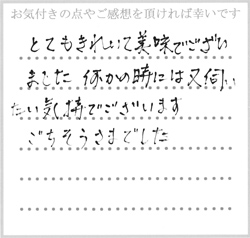 お気付きの点やご感想を頂ければ幸いです
とてもきれいで美味でござい
ました 何かの時には又伺い
たい気持でございます
ごちそうさまでした